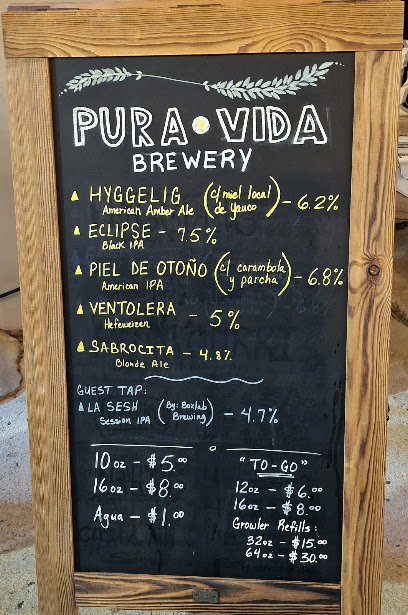 PURA • VIDA
BREWERY
HYGGELIG (c/ miel local de Yauco) - 6.2%
American Amber Ale
ECLIPSE - 7.5%
Black IPA
PIEL DE OTOÑO (c/ carambola y parcha) - 6.8%
American IPA
VENTOLERA - 5%
Hefeweizen
SABROCITA - 4.8%
Blonde Ale
GUEST TAP:
LA SESH (By: Boxlab Brewing) - 4.7%
Session IPA
10oz - $5.00
16oz - $8.00
Agua - $1.00
"TO-GO"
12oz - $6.00
16oz - $8.00
Growler Refills:
32oz - $15.00
64oz - $30.00